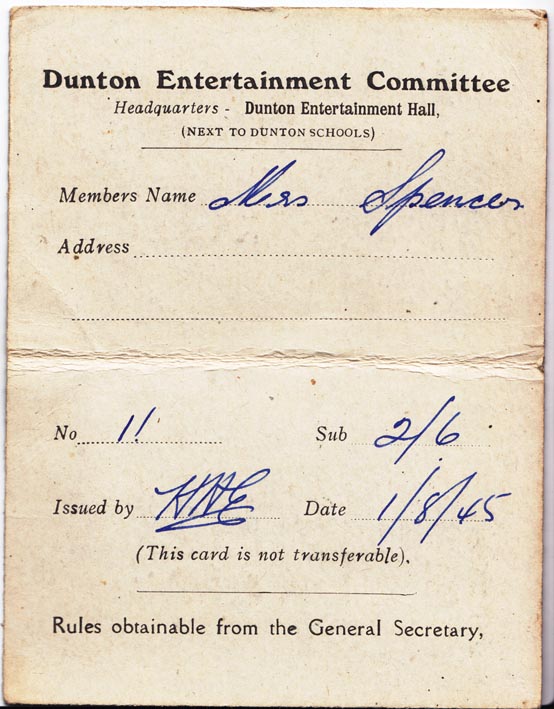 Dunton Entertainment Committee
Headquarters - Dunton Entertainment Hall,
(NEXT TO DUNTON SCHOOLS)
Members Name Mrs Spencer
Address
No 11 Sub 2/6
Issued by HHE Date 1/8/45
(This card is not transferable).
Rules obtainable from the General Secretary,